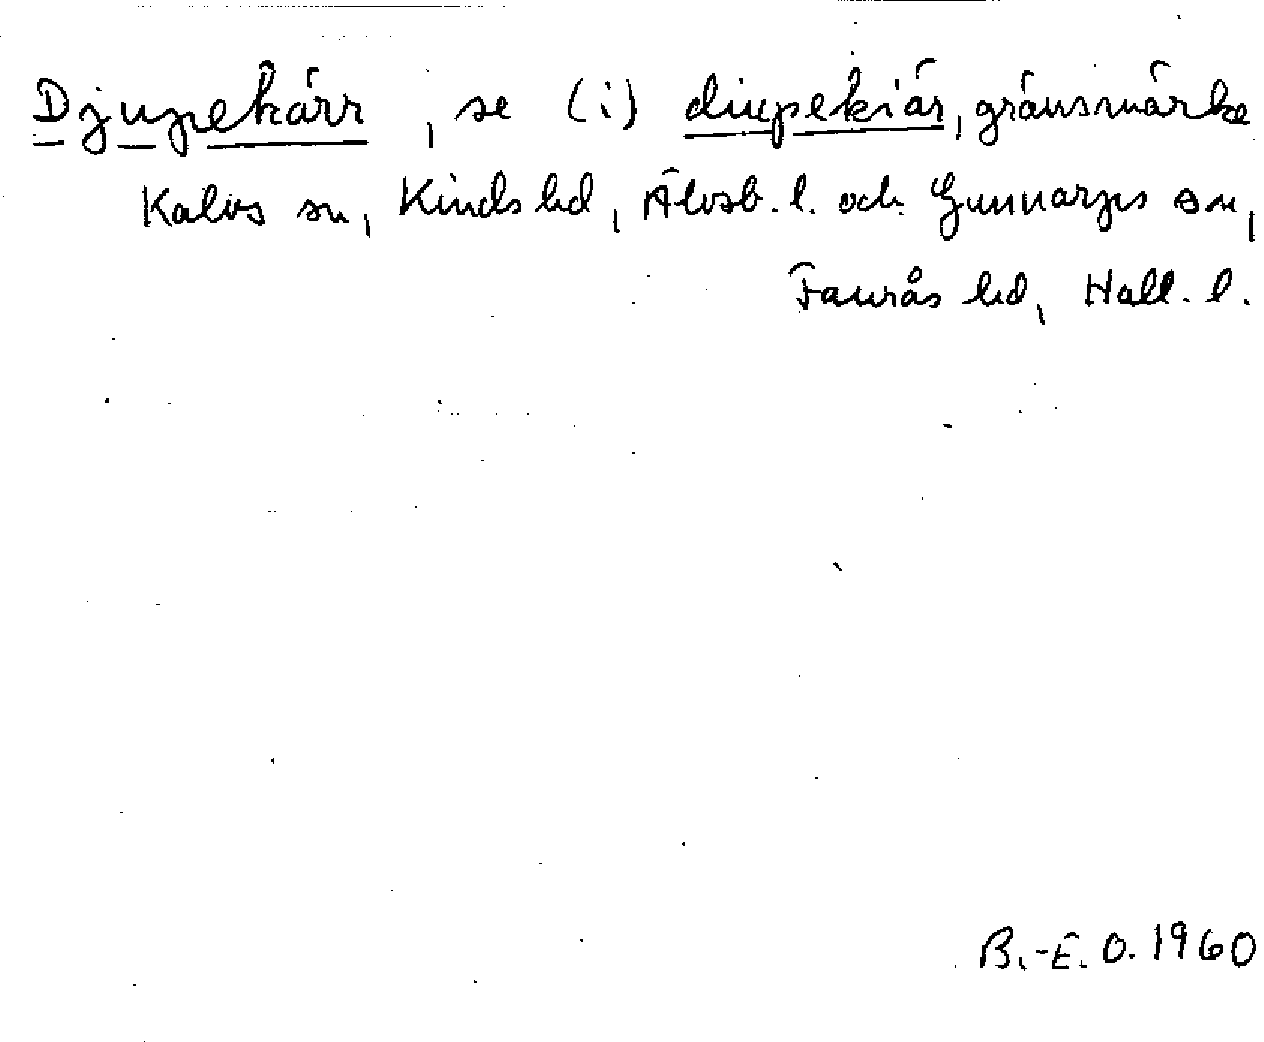 Djupekärr, se (i) diupekiär, gränsmärke
Kalvs sn, Kinds hd, Älvsb. l. och Gunnarps sn,
Faurås hd, Hall. l.
B.-E. O. 1960